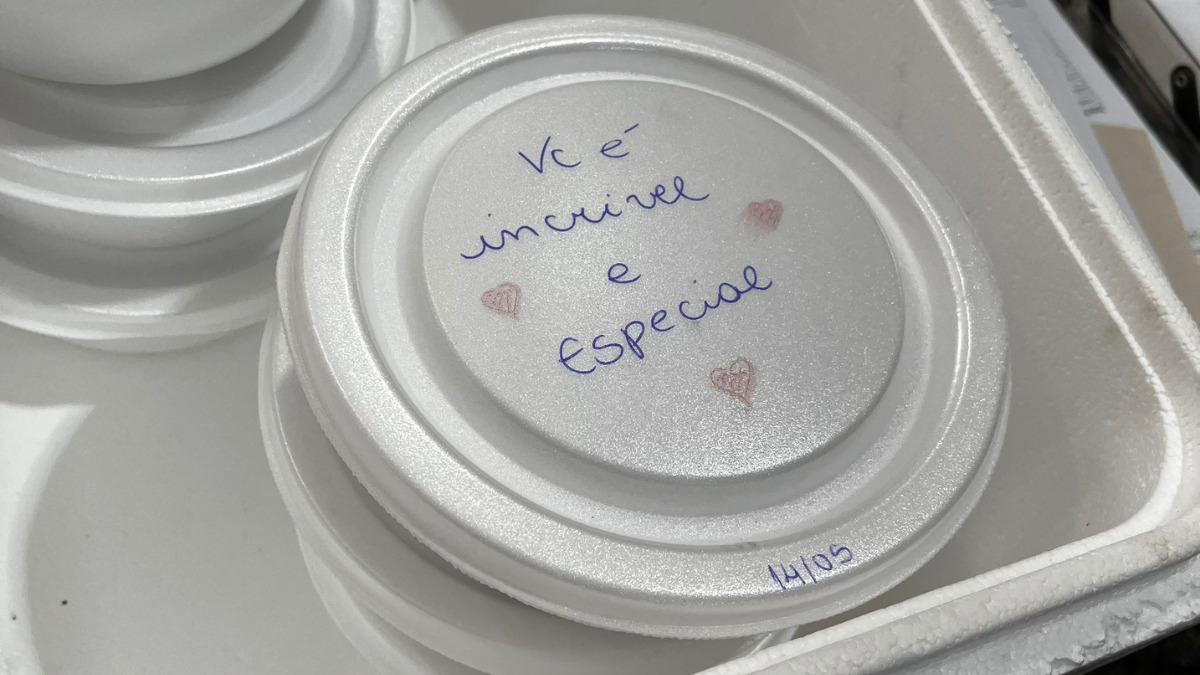 Vc é
incrivel
e
Especial
14/05